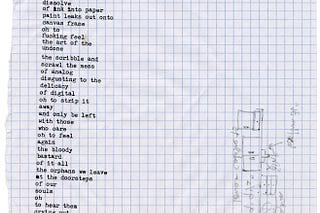 dissolve
of ink into paper
paint leaks out onto
canvas frame
oh to
fucking feel
the art of the
undone
the scribble and
scrawl the mess
of analog
disgusting to the
delicacy
of digital
oh to strip it
away
and only be left
with those
who care
oh to feel
again
the bloody
bastard
of it all
the orphans we leave
at the doorsteps
of our
souls
oh
to hear them
crying out